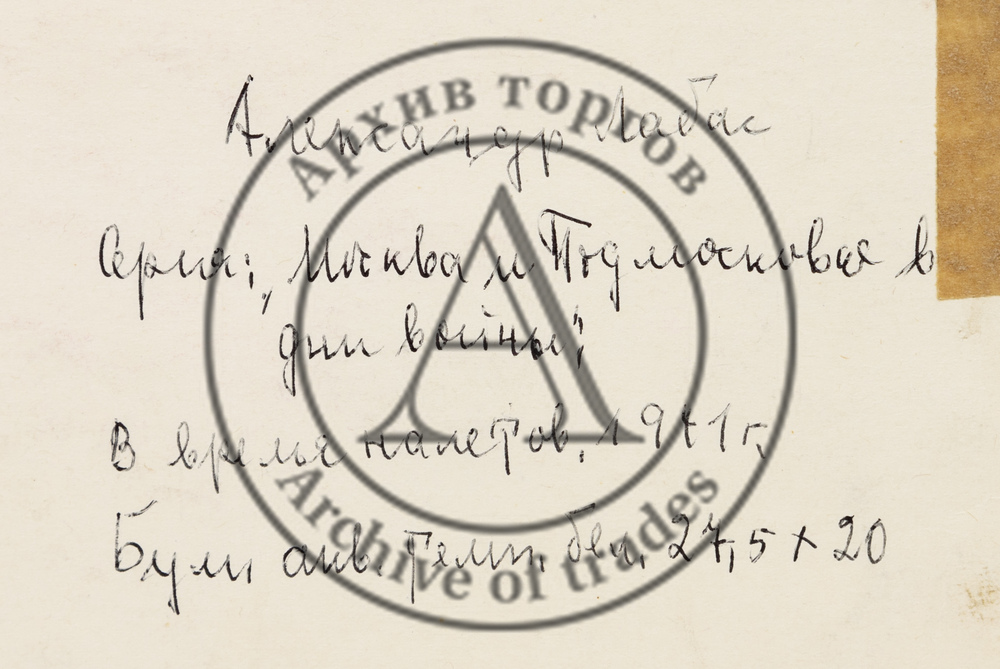 Александр Лабас
Серия: „Москва и Подмосковье в
дни войны";
В время налетов. 1941 г.
Бум. акв. темп. бел. 27,5 x 20
Архив торгов
Archive of trades